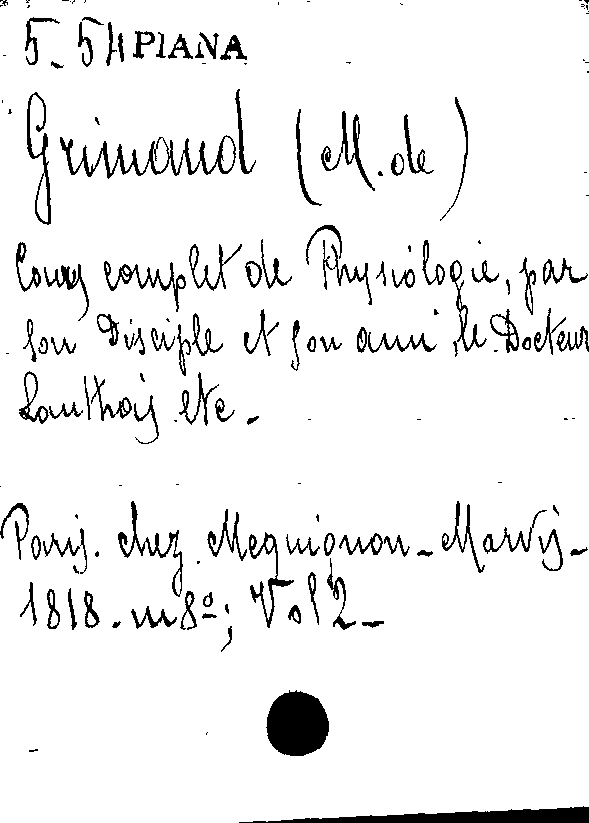 5_54 PIANA
Grimaud (M. de)
Cours complet de Physiologie, par
son Disciple et son ami, le Docteur
Lanthois etc.
Paris. chez. Mequignon-Marvis-
1818. in 8º; Vol 2-